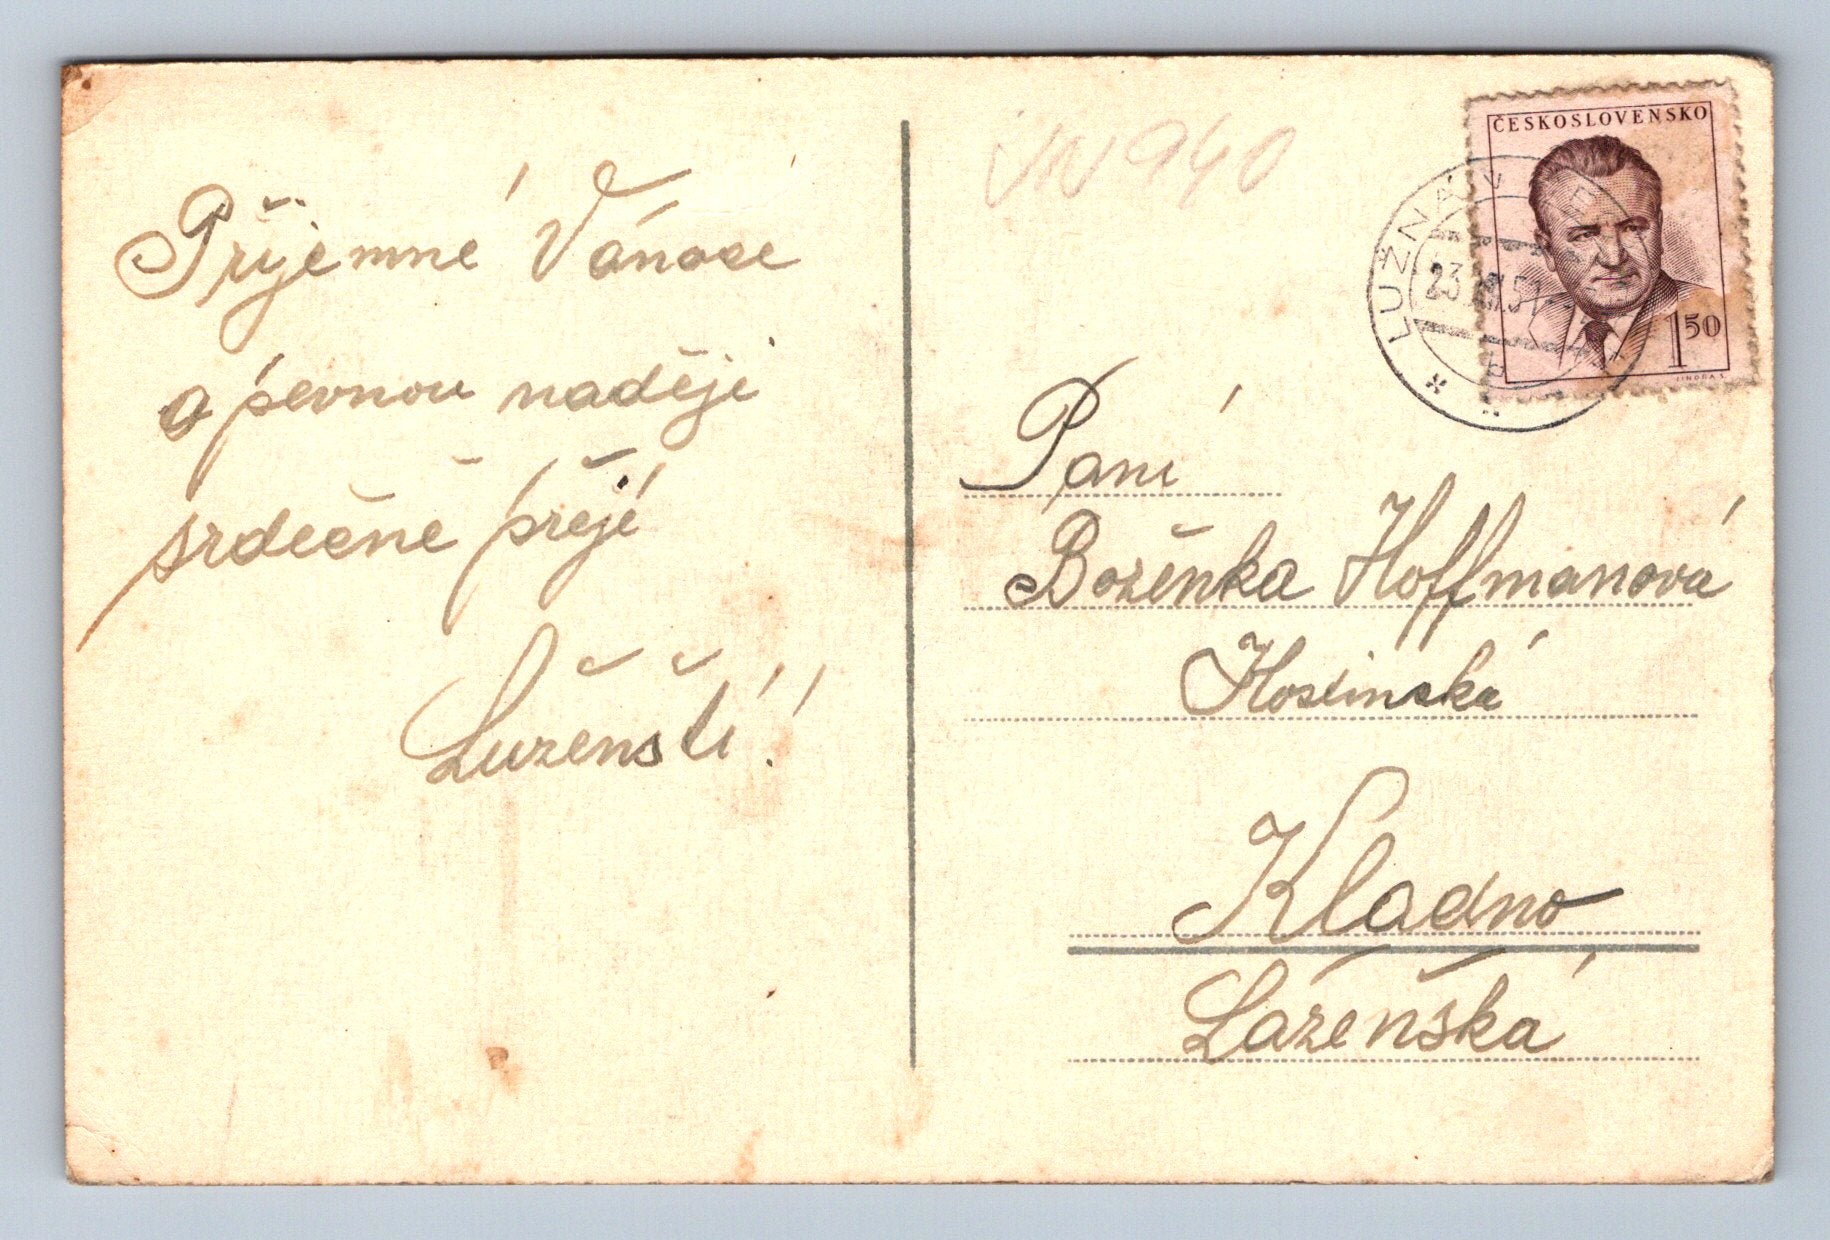 Příjemné Vánoce
a pevnou naději
srdečně přejí
Luženští!
VN 940
ČESKOSLOVENSKO
150
JINDRA S.
LUŽNÁ V
23.XII.51
Paní
Boženka Hoffmanová
Hostinská
Kladno
Lázeňská